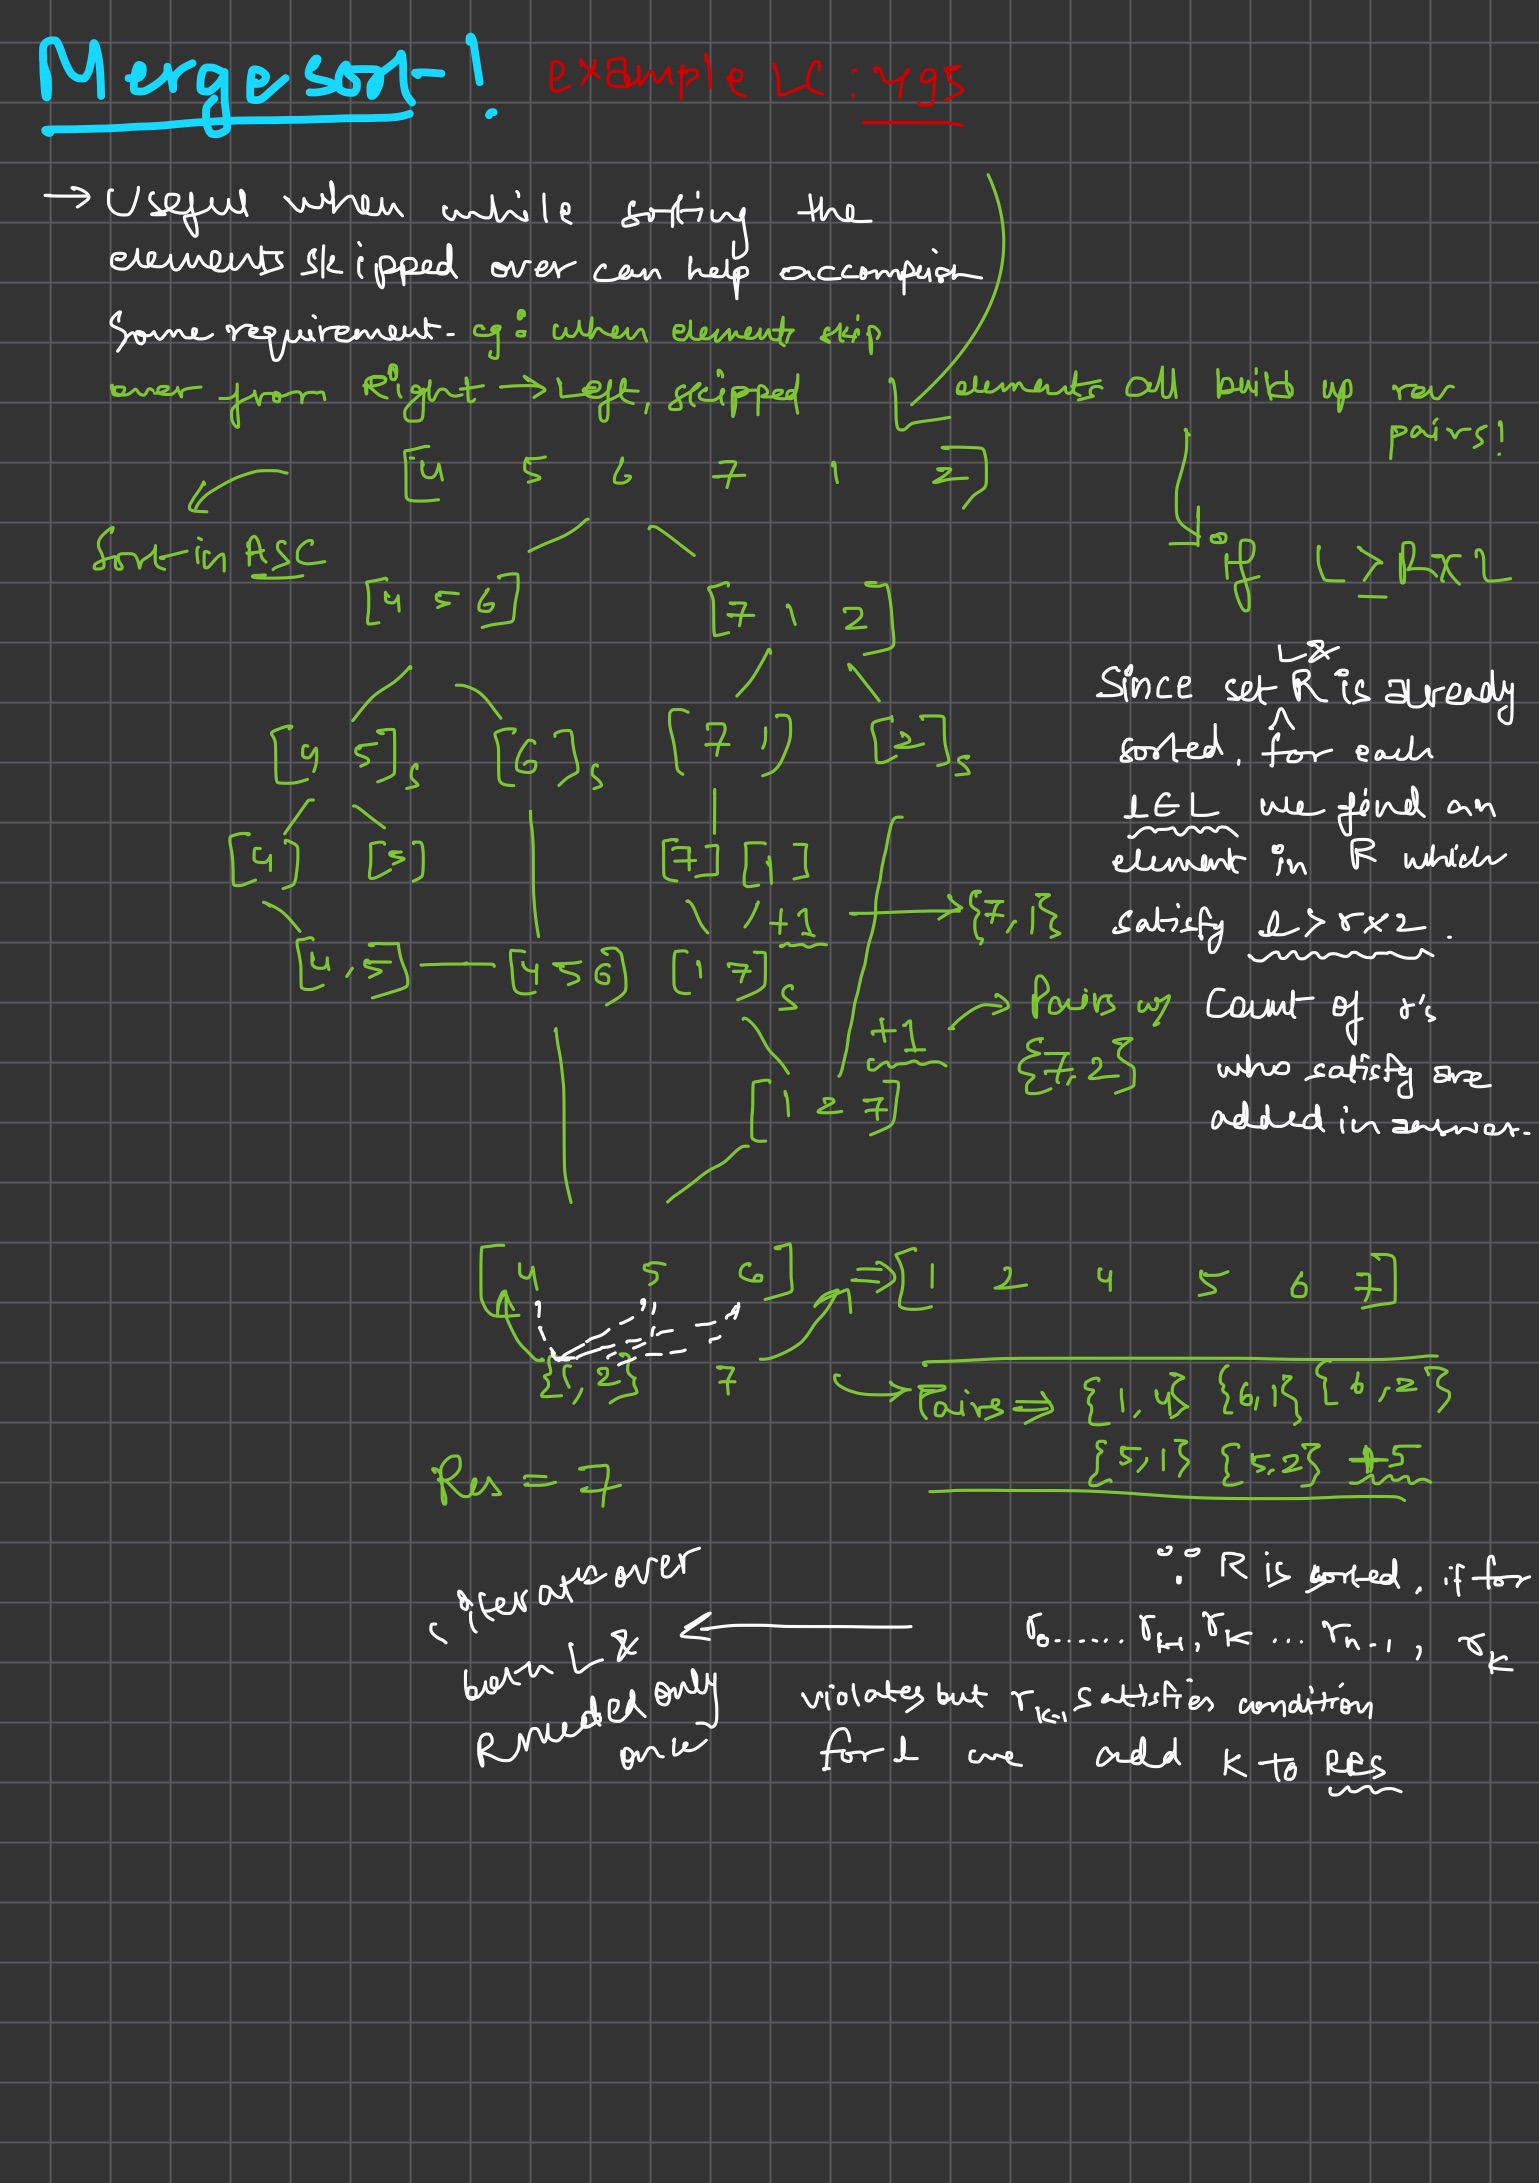 Merge sort! example LC: 493
→ Useful when while sorting the
elements skipped over can help accomplish
some requirement. eg: when elements skip
over from Right → Left, skipped elements all build up rev
pairs!
[4 5 6 7 1 2]
Sort in ASC
if L ≥ R x 2
[4 5 6] [7 1 2]
[4 5]s [6]s [7 1] [2]s
[4] [5] [7] [1]
+1 → {7, 1}
[4, 5] [4 5 6] [1 7]s
+1 → Pairs w/
{7, 2}
[1 2 7]
Since set L & R is already
sorted, for each
l ∈ L we find an
element in R which
satisfy l > r x 2.
Count of r's
who satisfy are
added in answer.
[4 5 6] ⇒ [1 2 4 5 6 7]
{1, 2} 7
Pairs ⇒ {1, 4} {6, 1} {6, 2}
{5, 1} {5, 2} +5
Res = 7
∵ R is sorted, if for
r0 ...... rk-1, rk ... rn-1, rk
violates but rk-1 satisfies condition
for l we add K to RES
iteratn over
both L &
R needed only
once